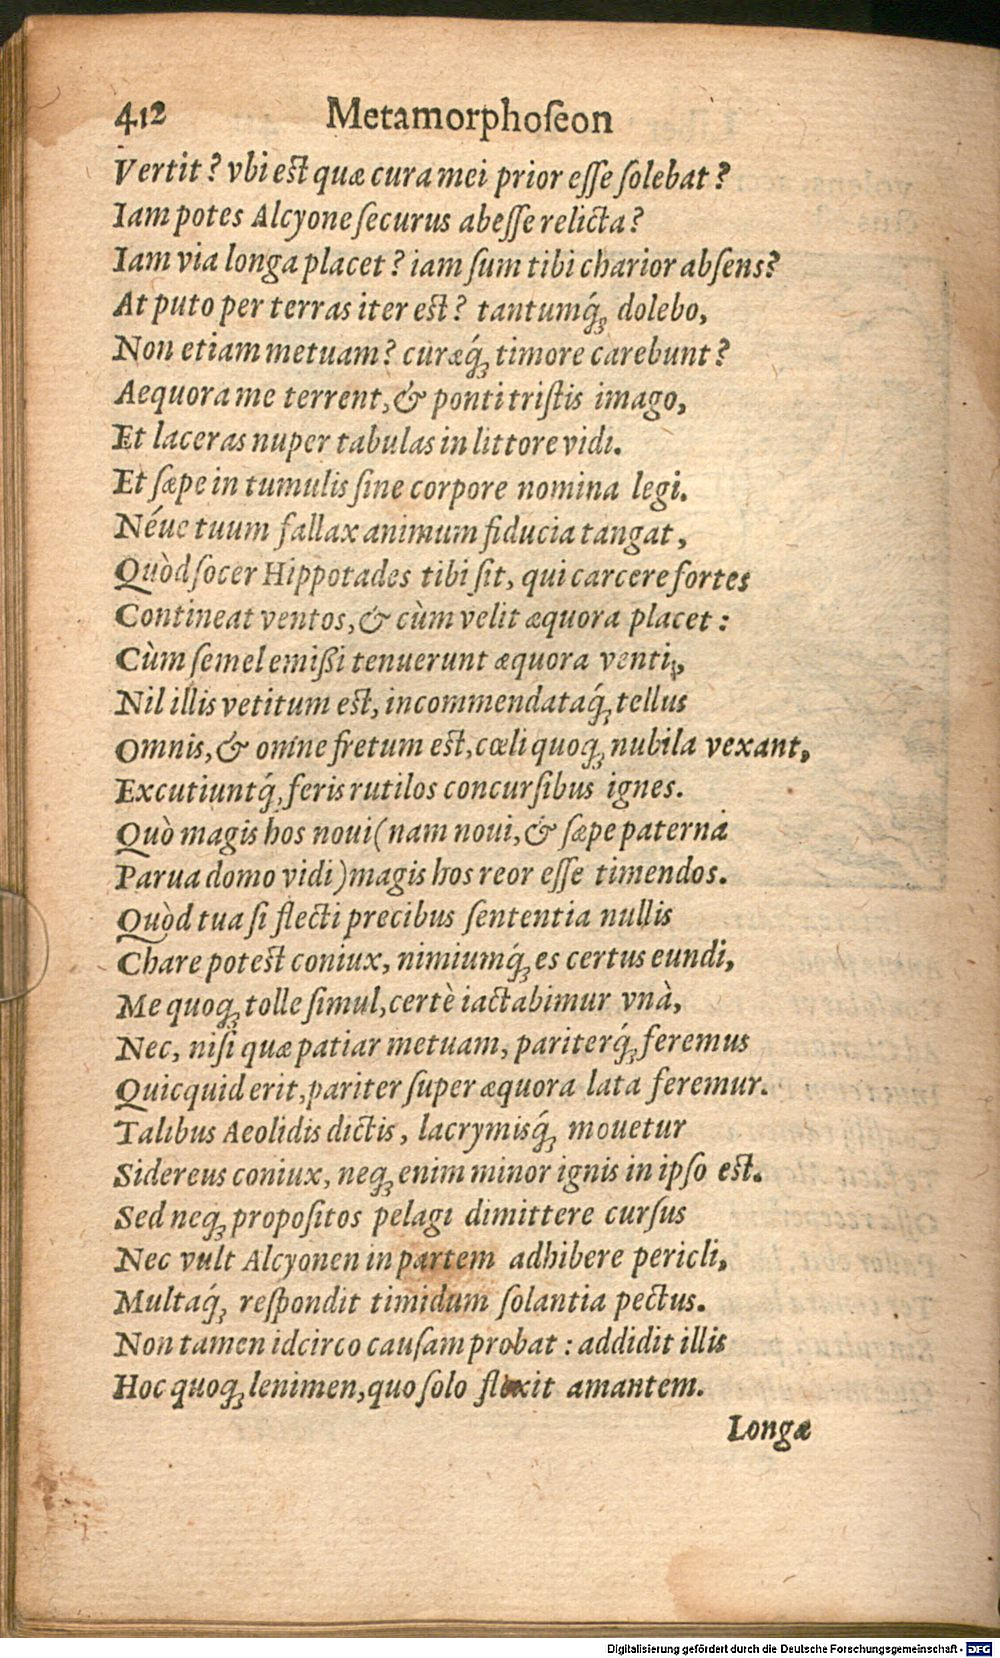 412 Metamorphoſeon
Vertit? vbi eſt quæ cura mei prior eſſe ſolebat?
Iam potes Alcyone ſecurus abeſſe relicta?
Iam via longa placet? iam ſum tibi charior abſens?
At puto per terras iter eſt? tantumq́; dolebo,
Non etiam metuam? curæq́; timore carebunt?
Aequora me terrent, & ponti triſtis imago,
Et laceras nuper tabulas in littore vidi.
Et ſæpe in tumulis ſine corpore nomina legi.
Néue tuum fallax animum fiducia tangat,
Quòd ſocer Hippotades tibi ſit, qui carcere fortes
Contineat ventos, & cùm velit æquora placet:
Cùm ſemel emißi tenuerunt æquora venti,
Nil illis vetitum eſt, incommendataq́; tellus
Omnis, & omne fretum eſt, cœli quoq; nubila vexant,
Excutiuntq́; feris rutilos concurſibus ignes.
Quò magis hos noui (nam noui, & ſæpe paterna
Parua domo vidi) magis hos reor eſſe timendos.
Quòd tua ſi flecti precibus ſententia nullis
Chare poteſt coniux, nimiumq́; es certus eundi,
Me quoq; tolle ſimul, certè iactabimur vnà,
Nec, niſi quæ patiar metuam, pariterq́; feremus
Quicquid erit, pariter ſuper æquora lata feremur.
Talibus Aeolidis dictis, lacrymisq́; mouetur
Sidereus coniux, neq; enim minor ignis in ipſo eſt.
Sed neq; propoſitos pelagi dimittere curſus
Nec vult Alcyonen in partem adhibere pericli,
Multaq́; reſpondit timidum ſolantia pectus.
Non tamen idcirco cauſam probat: addidit illis
Hoc quoq; lenimen, quo ſolo flexit amantem.
Longæ
Digitalisierung gefördert durch die Deutsche Forschungsgemeinschaft - DFG